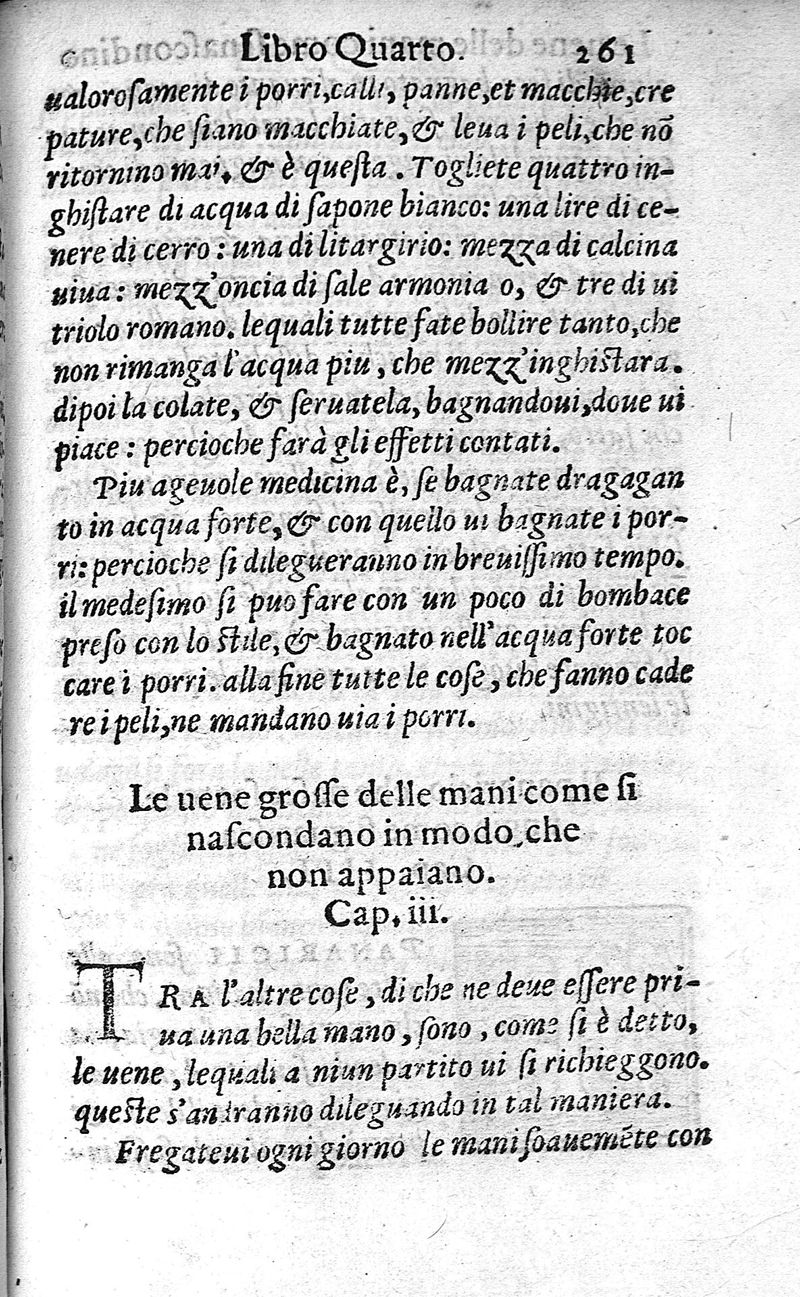 Libro Quarto. 261
ualoroſamente i porri,calli, panne,et macchie,cre
pature,che ſiano macchiate,& leua i peli,che nõ
ritornino mai. & è queſta . Togliete quattro in-
ghiſtare di acqua di ſapone bianco: una lire di ce-
nere di cerro : una di litargirio: mezza di calcina
uiua : mezz'oncia di ſale armonia o, & tre di ui
triolo romano. lequali tutte fate bollire tanto,che
non rimanga l'acqua piu , che mezz'inghiſtara.
dipoi la colate, & ſeruatela, bagnandoui,doue ui
piace : percioche farà gli effetti contati.
Piu ageuole medicina è, ſe bagnate dragagan
to in acqua forte,& con quello ui bagnate i por-
ri: percioche ſi dilegueranno in breuiſſimo tempo.
il medeſimo ſi puo fare con un poco di bombace
preſo con lo ſtile,& bagnato nell'acqua forte toc
care i porri. alla fine tutte le coſe , che fanno cade
re i peli,ne mandano uia i porri.
Le uene groſſe delle mani come ſi
naſcondano in modo,che
non appaiano.
Cap, iii.
TRA l'altre coſe , di che ne deue eſſere pri-
ua una bella mano , ſono , come ſi è detto,
le uene , lequali a niun partito ui ſi richieggono.
queſte s'andranno dileguando in tal maniera.
Fregateui ogni giorno le mani ſoauemẽte con